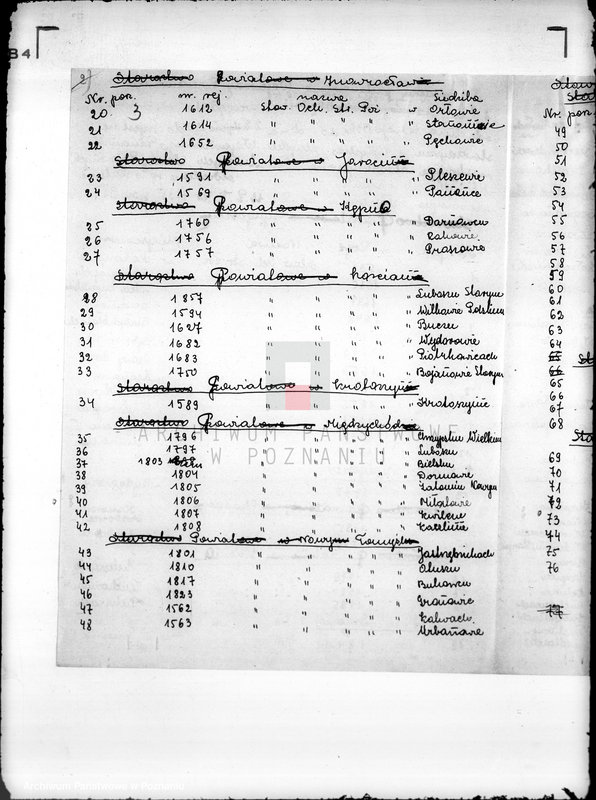 B 4
2
Starostwo Powiatowe w Inowrocławiu
Nr. poz. nr. rej. nazwa Siedziba
20 3 1612 Stow. Och. Str. Poż. w Orłowie
21 1614 " " " " "
22 1652 " " " " " Pęchowie
Starostwo Powiatowe w Jarocinie
23 1591 " " " " " Pleszewie
24 1569 " " " " "
Starostwo Powiatowe w Kępnie
25 1760 " " " " "
26 1756 " " " " "
27 1757 " " " " "
Starostwo Powiatowe w Kościanie
28 1857 " " " " " Luboszu Starym
29 1594 " " " " " Wilkowie Polskim
30 1627 " " " " " Buczu
31 1682 " " " " " Wydorowie
32 1683 " " " " " Piotrkowicach
33 1750 " " " " " Bojanowie Starym
Starostwo Powiatowe w Krotoszynie
34 1589 " " " " " Krotoszynie
Starostwo Powiatowe w Międzychodzie
35 1796 " " " " " Chrzypsku Wielkim
36 1797 " " " " " Luboszu
37 1803 " " " " " Bielsku
38 1804 " " " " " Dormowie
39 1805 " " " " " Zatomiu Nowym
40 1806 " " " " "
41 1807 " " " " " Kwilczu
42 1808 " " " " "
Starostwo Powiatowe w Nowym Tomyślu
43 1801 " " " " " Jastrzębnikach
44 1810 " " " " "
45 1817 " " " " " Bukowcu
46 1823 " " " " " Granowie
47 1562 " " " " " Kalwach
48 1563 " " " " " Urbanowie
Nr poz
49
50
51
52
53
54
55
56
57
58
59
60
61
62
63
64
65
66
65
66
67
68
69
70
71
72
73
74
75
76
77
ARCHIWUM PAŃSTWOWE
W POZNANIU
Archiwum Państwowe w Poznaniu